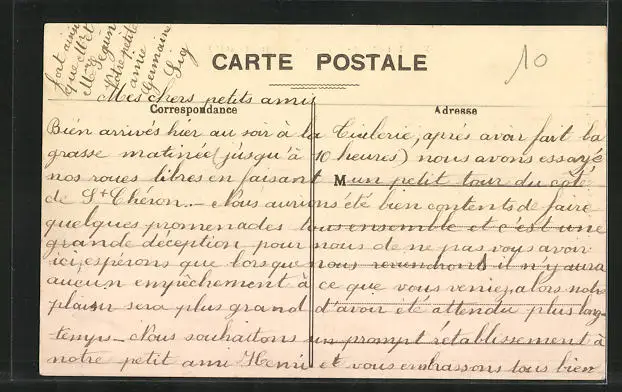 CARTE POSTALE
10
Correspondance
Adresse
Mes chers petits amis
Bien arrivés hier au soir à la Tuilerie, après avoir fait la
grasse matinée (jusqu'à 10 heures) nous avons essayé
nos roues libres en faisant M un petit tour du côté
de St Chéron. – Nous aurions été bien contents de faire
quelques promenades tous ensemble et c'est une
grande déception pour nous de ne pas vous avoir
ici, espérons que lorsque nous reviendrons il n'y aura
aucun empêchement à ce que vous veniez, alors notre
plaisir sera plus grand d'avoir été attendu plus long-
temps – Nous souhaitons un prompt rétablissement à
notre petit ami Henri et vous embrassons tous bien
fort ainsi
que Mr et
Mme Seguin
Votre petite
amie
Germaine